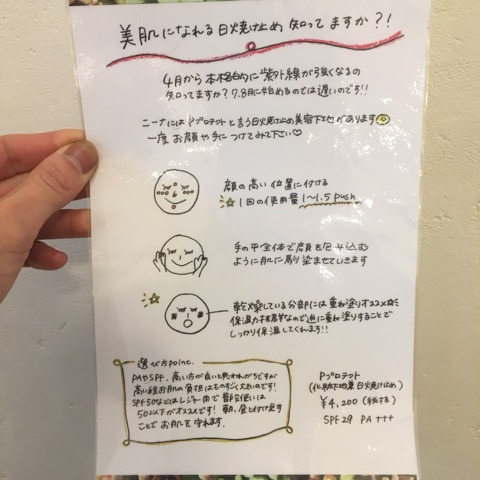 美肌になれる日焼け止め 知ってますか?!
4月から本格的に紫外線が強くなるの
知ってますか?7.8月に始めるのでは遅いのです!!
ニーナには Pプロテクトと言う日焼け止め美容下地があります
一度 お顔や手に つけてみて下さい♡
顔の高い位置に付ける
☆1回の使用量 1〜1.5 push
手の平全体で顔を包み込む
ように肌に馴染ませていきます
乾燥している部分には重ね塗りオススメ☆
保温力抜群なので逆に重ね塗りすることで
しっかり保温してくれます!!
選び方point.
PAやSPF、高い方が良いと思われがちですが
高い程お肌の負担はものすごく大きいのです!
SPF50などはレジャー用で普段使いは
50以下がオススメです! 朝、昼と付け足す
ことでお肌を守れます。
Pプロテクト
(化粧下地兼日焼け止め)
¥4,200(税抜)
SPF29 PA+++